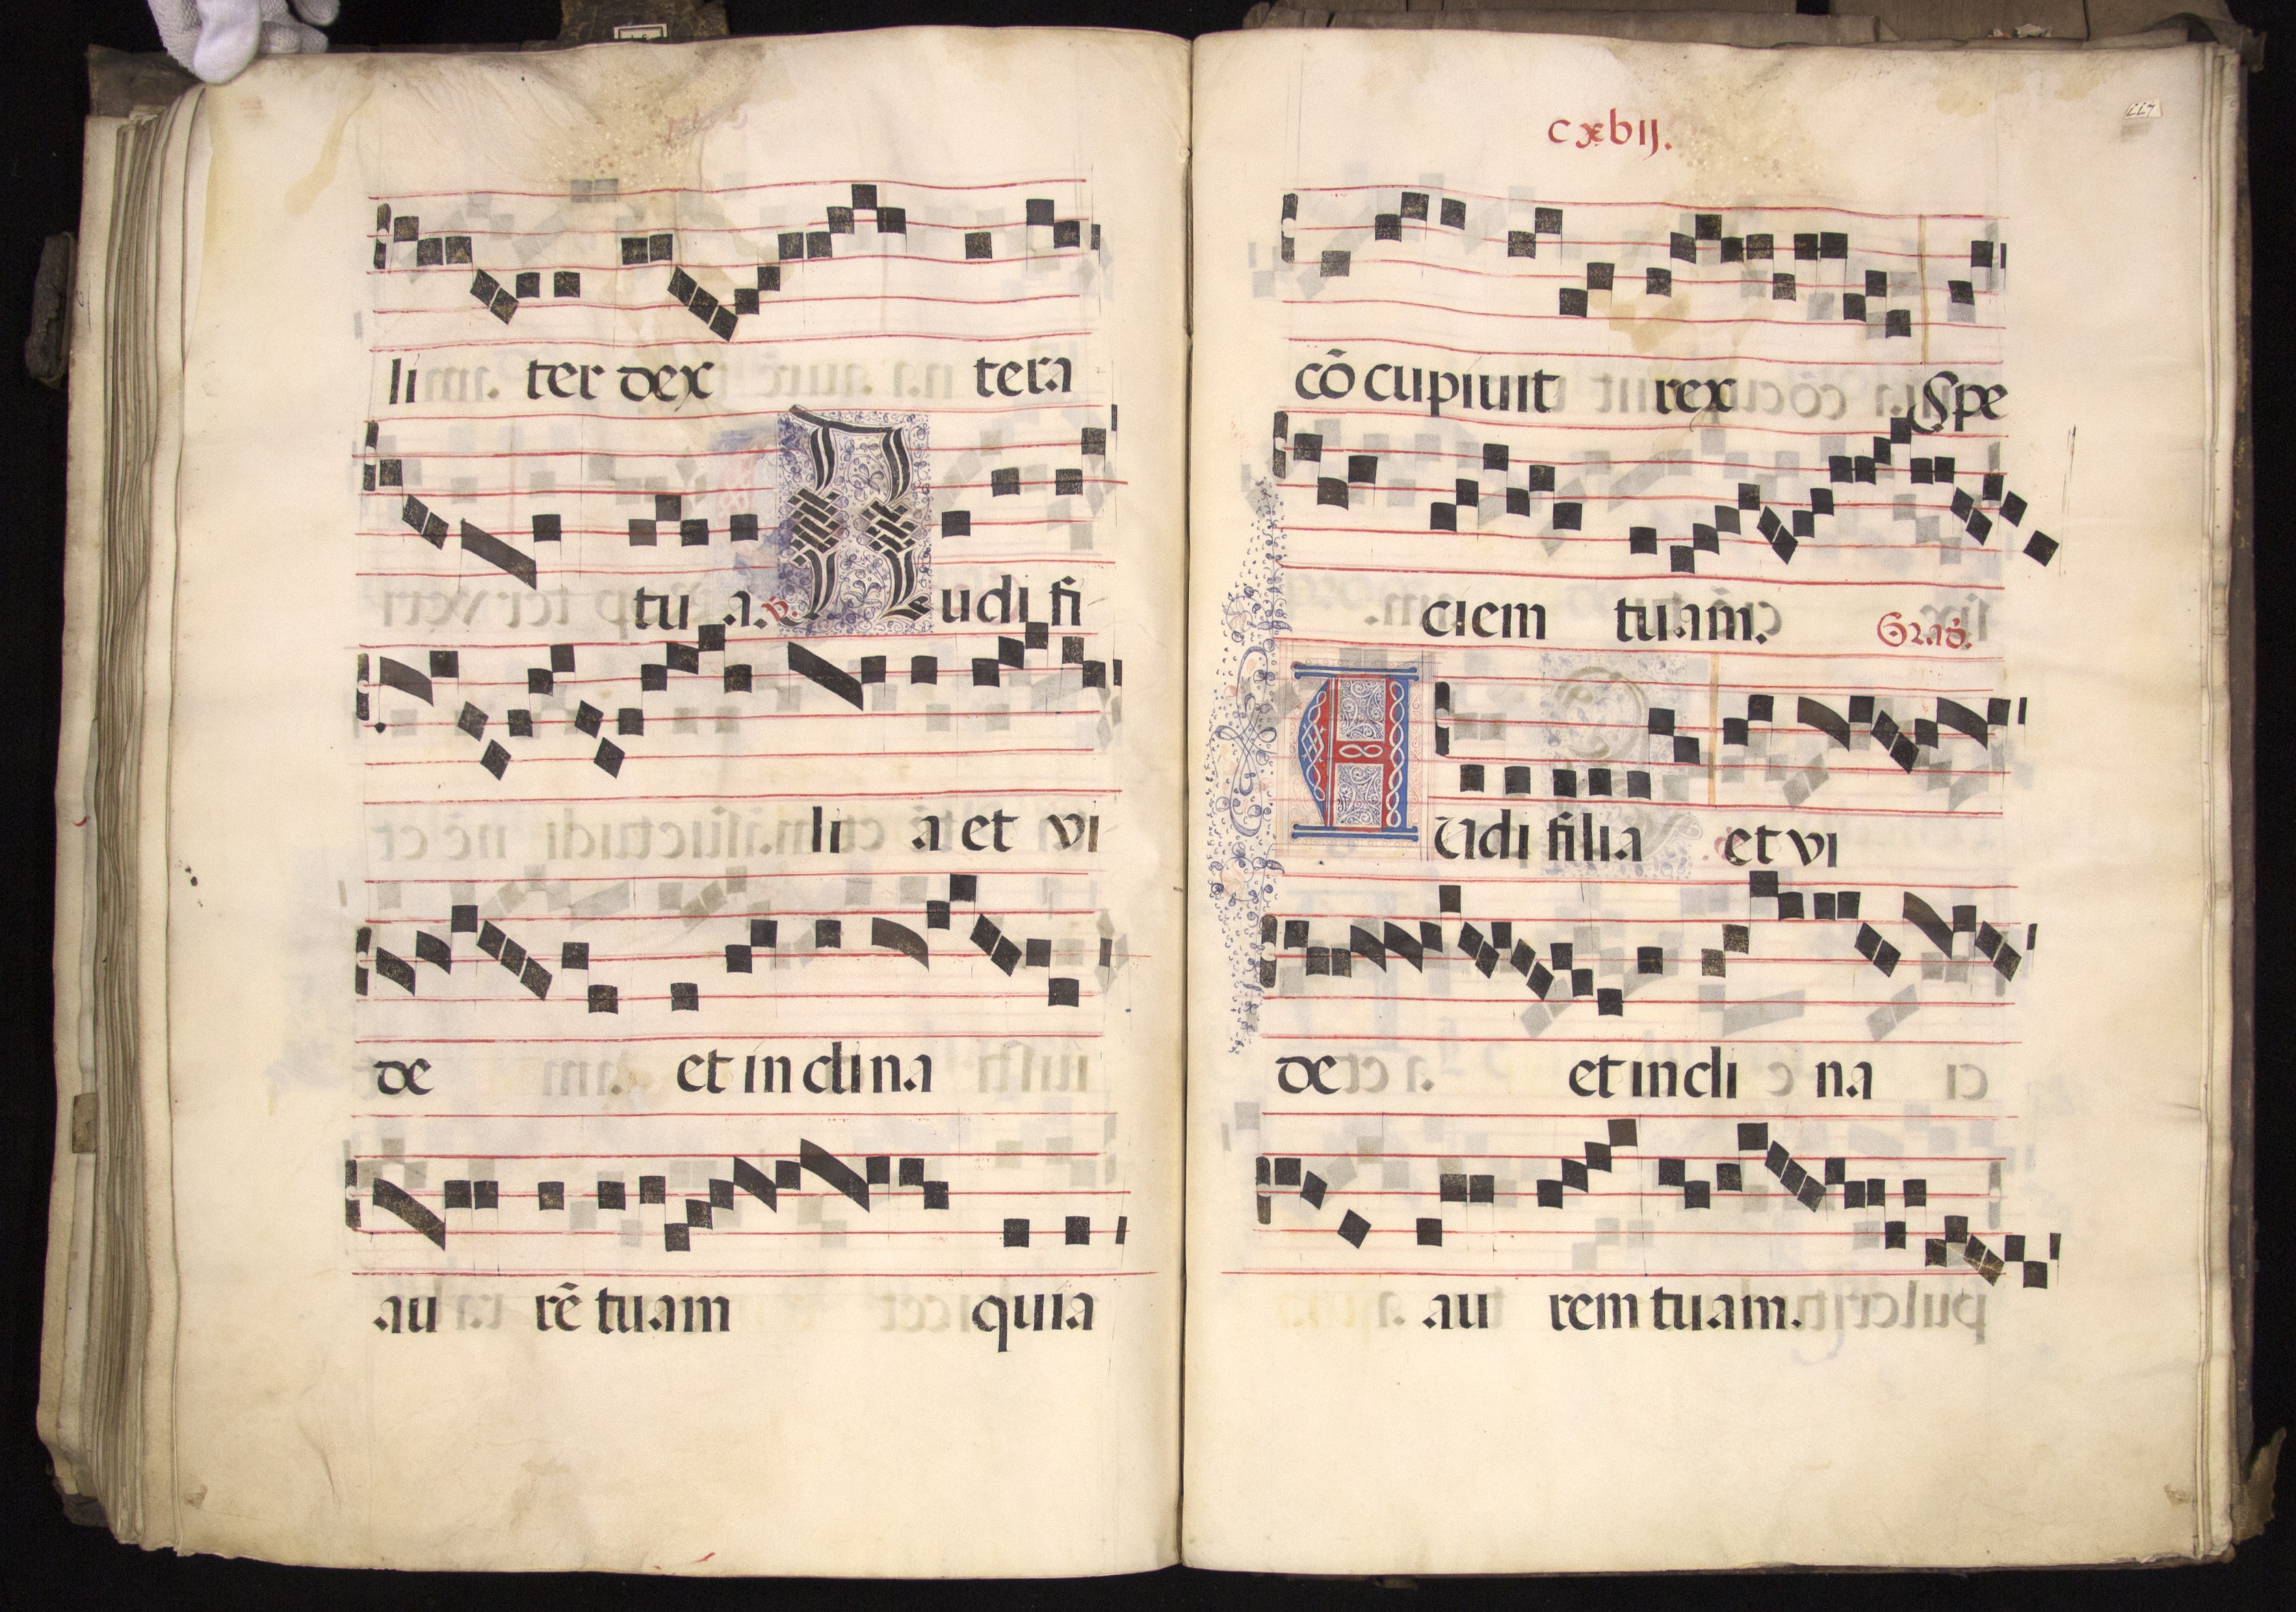 li ter dex tera
tu a. ℣. Audi fi
li a et vi
de et in clina
au rẽ tuam quia
cxbij.
117
cõcupiuit rex Spe
ciem tuam. Grad̃.
Audi filia et vi
de et incli na
au rem tuam.